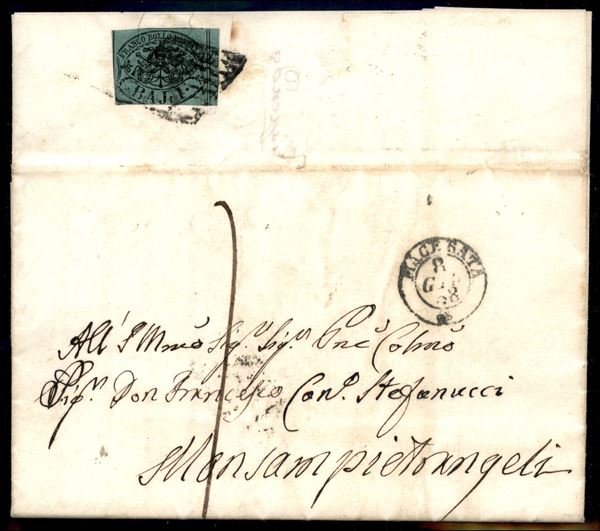 FRANCO BOLLO
BAJ. 1.
MACERATA
All' Illmo Sigr Sigr Pne Colmo
Sigr Don Francesco Canco Stefanucci
Monsampietrangeli
1